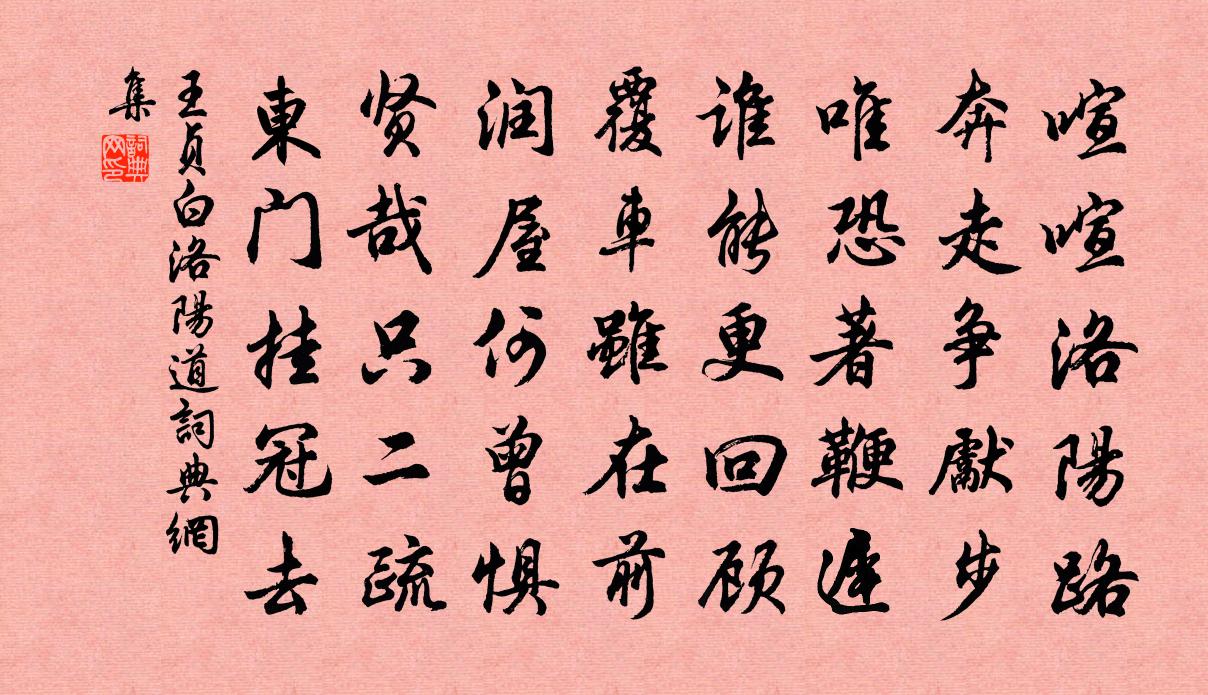 喧喧洛陽路
奔走争獻步
唯恐著鞭遲
谁能更回顾
覆車雖在前
润屋何曾惧
贤哉只二疏
東门挂冠去
王貞白洛陽道詞典網
集
詞典
网印